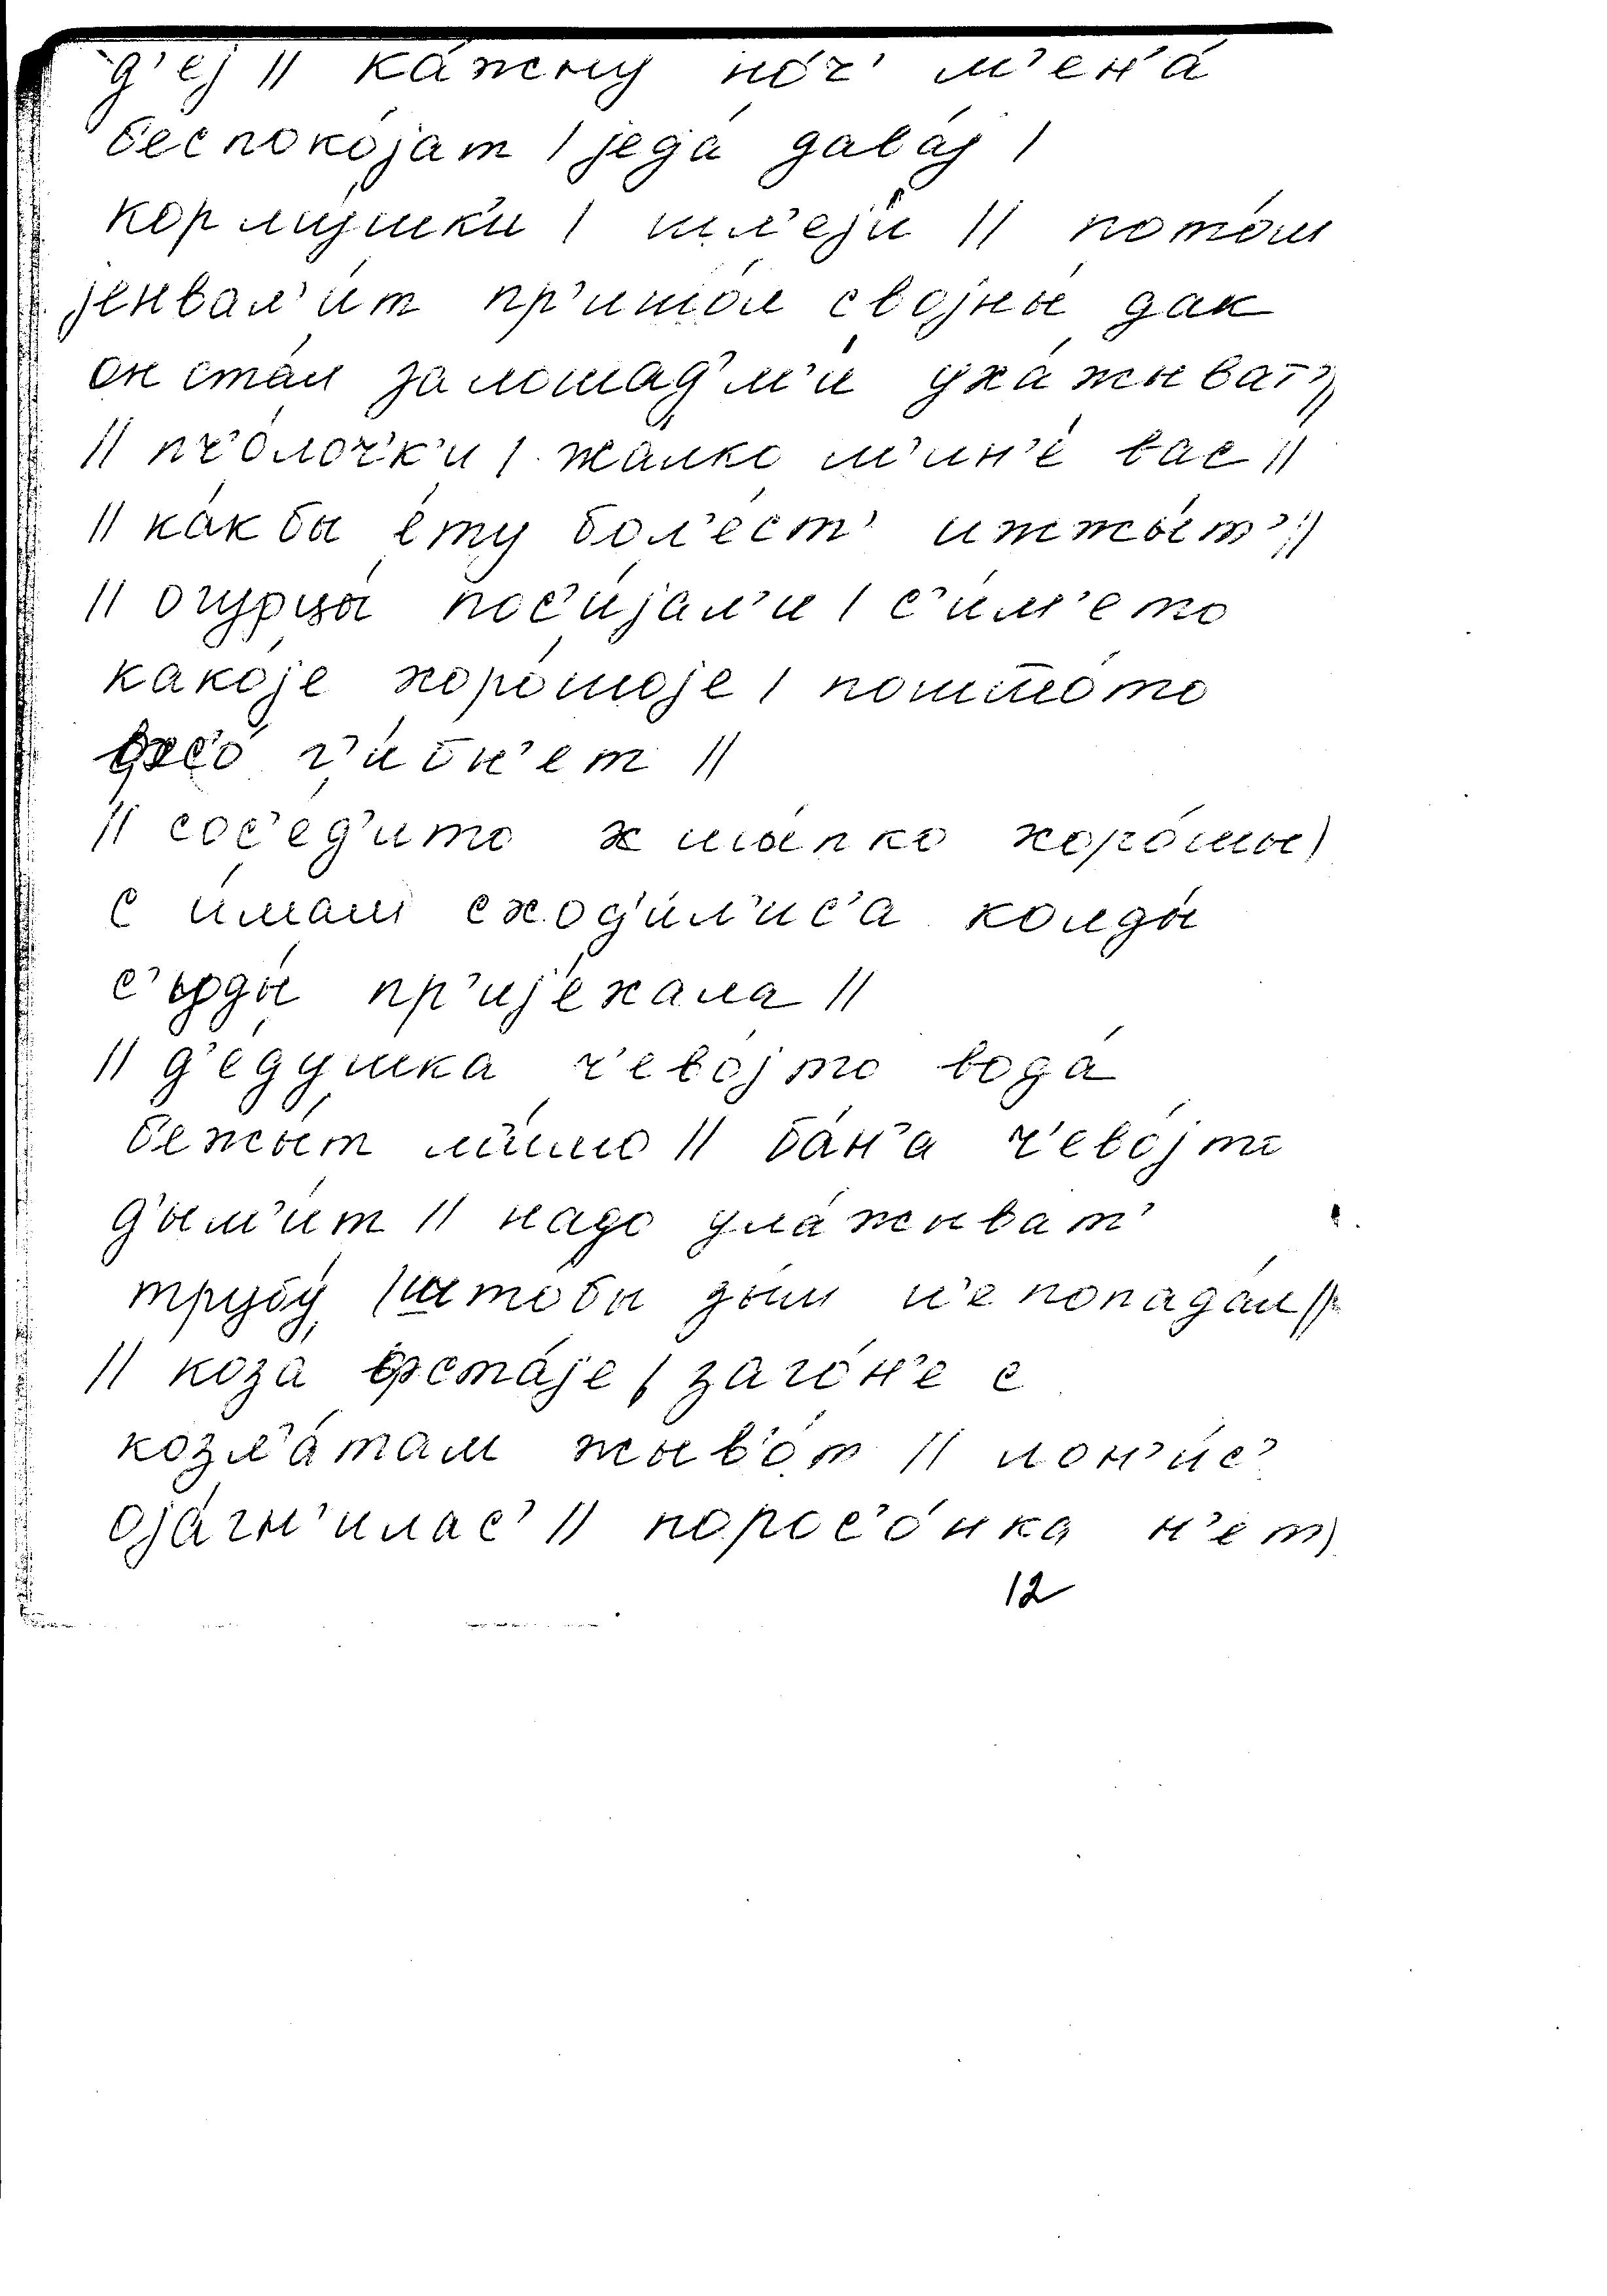 д’еј || ка́жну но́ч’ м’ен’а́
беспоко́јат | једа́ дава́ј |
корму́шк’и | шл’еји́ || пото́м
јенвал’и́т пр’ишо́л својны́ дак
он ста́л за лошад’м’и́ уха́жыват’ ||
|| пч’о́лоч’к’и | жа́лко м’ин’е́ вас ||
|| ка́к бы е́ту бол’е́ст’ ижжы́т’ ||
|| огурцы́ пос’и́јал’и | с’и́м’ето
како́је хоро́шоје | пошто́то
фс’о́ г’и́бн’ет ||
|| сос’е́д’ито х шы́пко хоро́шы |
с и́мам сход’и́л’ис’а колды́
с’уды́ пр’ије́хала ||
|| д’е́душка ч’ево́јто вода́
бежы́т ми́мо || ба́н’а ч’ево́јто
д’ым’и́т || надо ула́жыват’
трубу́ | што́бы ды́м н’е попада́л ||
|| коза́ фста́је | заго́н’е с
козл’а́там жыв’о́т || лон’и́с’
оја́гн’илас’ || порос’о́нка н’ет |
12